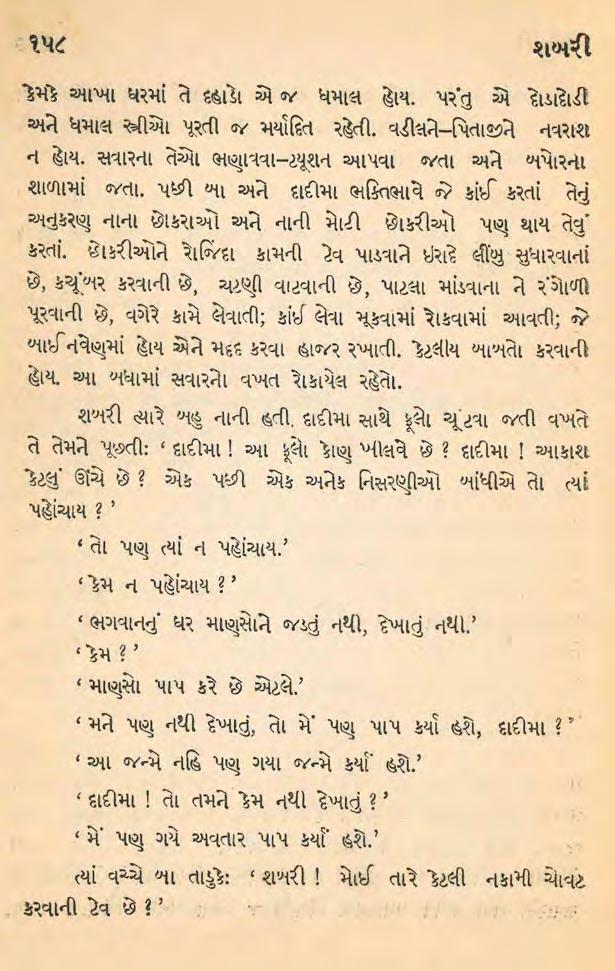 ૧૫૮ શબરી
કેમકે આખા ઘરમાં તે દહાડો એ જ ધમાલ હોય. પરંતુ એ દોડાદોડી
અને ધમાલ સ્ત્રીઓ પૂરતી જ મર્યાદિત રહેતી. વડીલને–પિતાજીને નવરાશ
ન હોય. સવારના તેઓ ભણાવવા–ટ્યૂશન આપવા જતા અને બપોરના
શાળામાં જતા. પછી બા અને દાદીમા ભક્તિભાવે જે કાંઈ કરતાં તેનું
અનુકરણ નાના છોકરાઓ અને નાની મોટી છોકરીઓ પણ થાય તેવું
કરતાં. છોકરીઓને રોજિંદા કામની ટેવ પાડવાને ઇરાદે લીંબુ સુધારવાનાં
છે, કચૂંબર કરવાની છે, ચટણી વાટવાની છે, પાટલા માંડવાના ને રંગોળી
પૂરવાની છે, વગેરે કામે લેવાતી; કાંઈ લેવા મૂકવામાં રોકવામાં આવતી; જે
બાઈ નવેણમાં હોય એને મદદ કરવા હાજર રખાતી. કેટલીય બાબતો કરવાની
હોય. આ બધામાં સવારનો વખત રોકાયેલ રહેતો.
શબરી ત્યારે બહુ નાની હતી. દાદીમા સાથે ફૂલો ચૂંટવા જતી વખતે
તે તેમને પૂછતી: ‘ દાદીમા ! આ ફૂલો કોણ ખીલવે છે ? દાદીમા ! આકાશ
કેટલું ઊંચે છે ? એક પછી એક અનેક નિસરણીઓ બાંધીએ તો ત્યાં
પહોંચાય ? ’
‘ તો પણ ત્યાં ન પહોંચાય.’
‘ કેમ ન પહોંચાય ? ’
‘ ભગવાનનું ઘર માણસોને જડતું નથી, દેખાતું નથી.’
‘ કેમ ? ’
‘ માણસો પાપ કરે છે એટલે.’
‘ મને પણ નથી દેખાતું, તો મેં પણ પાપ કર્યા હશે, દાદીમા ? ’
‘ આ જન્મે નહિ પણ ગયા જન્મે કર્યાં હશે.’
‘ દાદીમા ! તો તમને કેમ નથી દેખાતું ? ’
‘ મેં પણ ગયે અવતાર પાપ કર્યાં હશે.’
ત્યાં વચ્ચે બા તાડુકે: ‘ શબરી ! મોઈ તારે કેટલી નકામી ચોવટ
કરવાની ટેવ છે ? ’